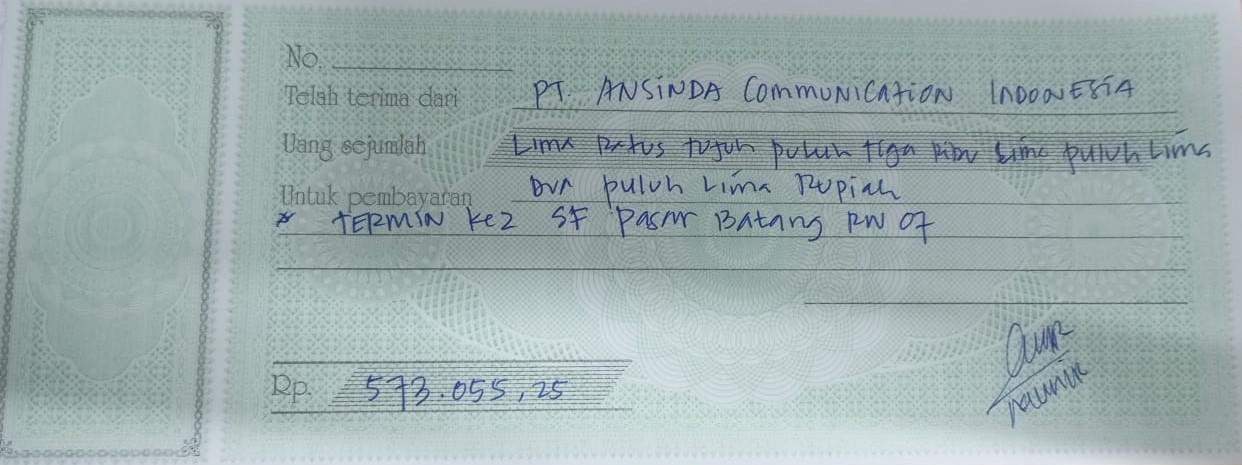 No.
Telah terima dari PT. ANSINDA COMMUNICATION INDONESIA
Uang sejumlah Lima Ratus tujuh puluh tiga Ribu Lima puluh Lima
Untuk pembayaran DUA puluh Lima Rupiah
* TERMIN Ke2 SF Pasar Batang RW 07
Rp. 573.055,25